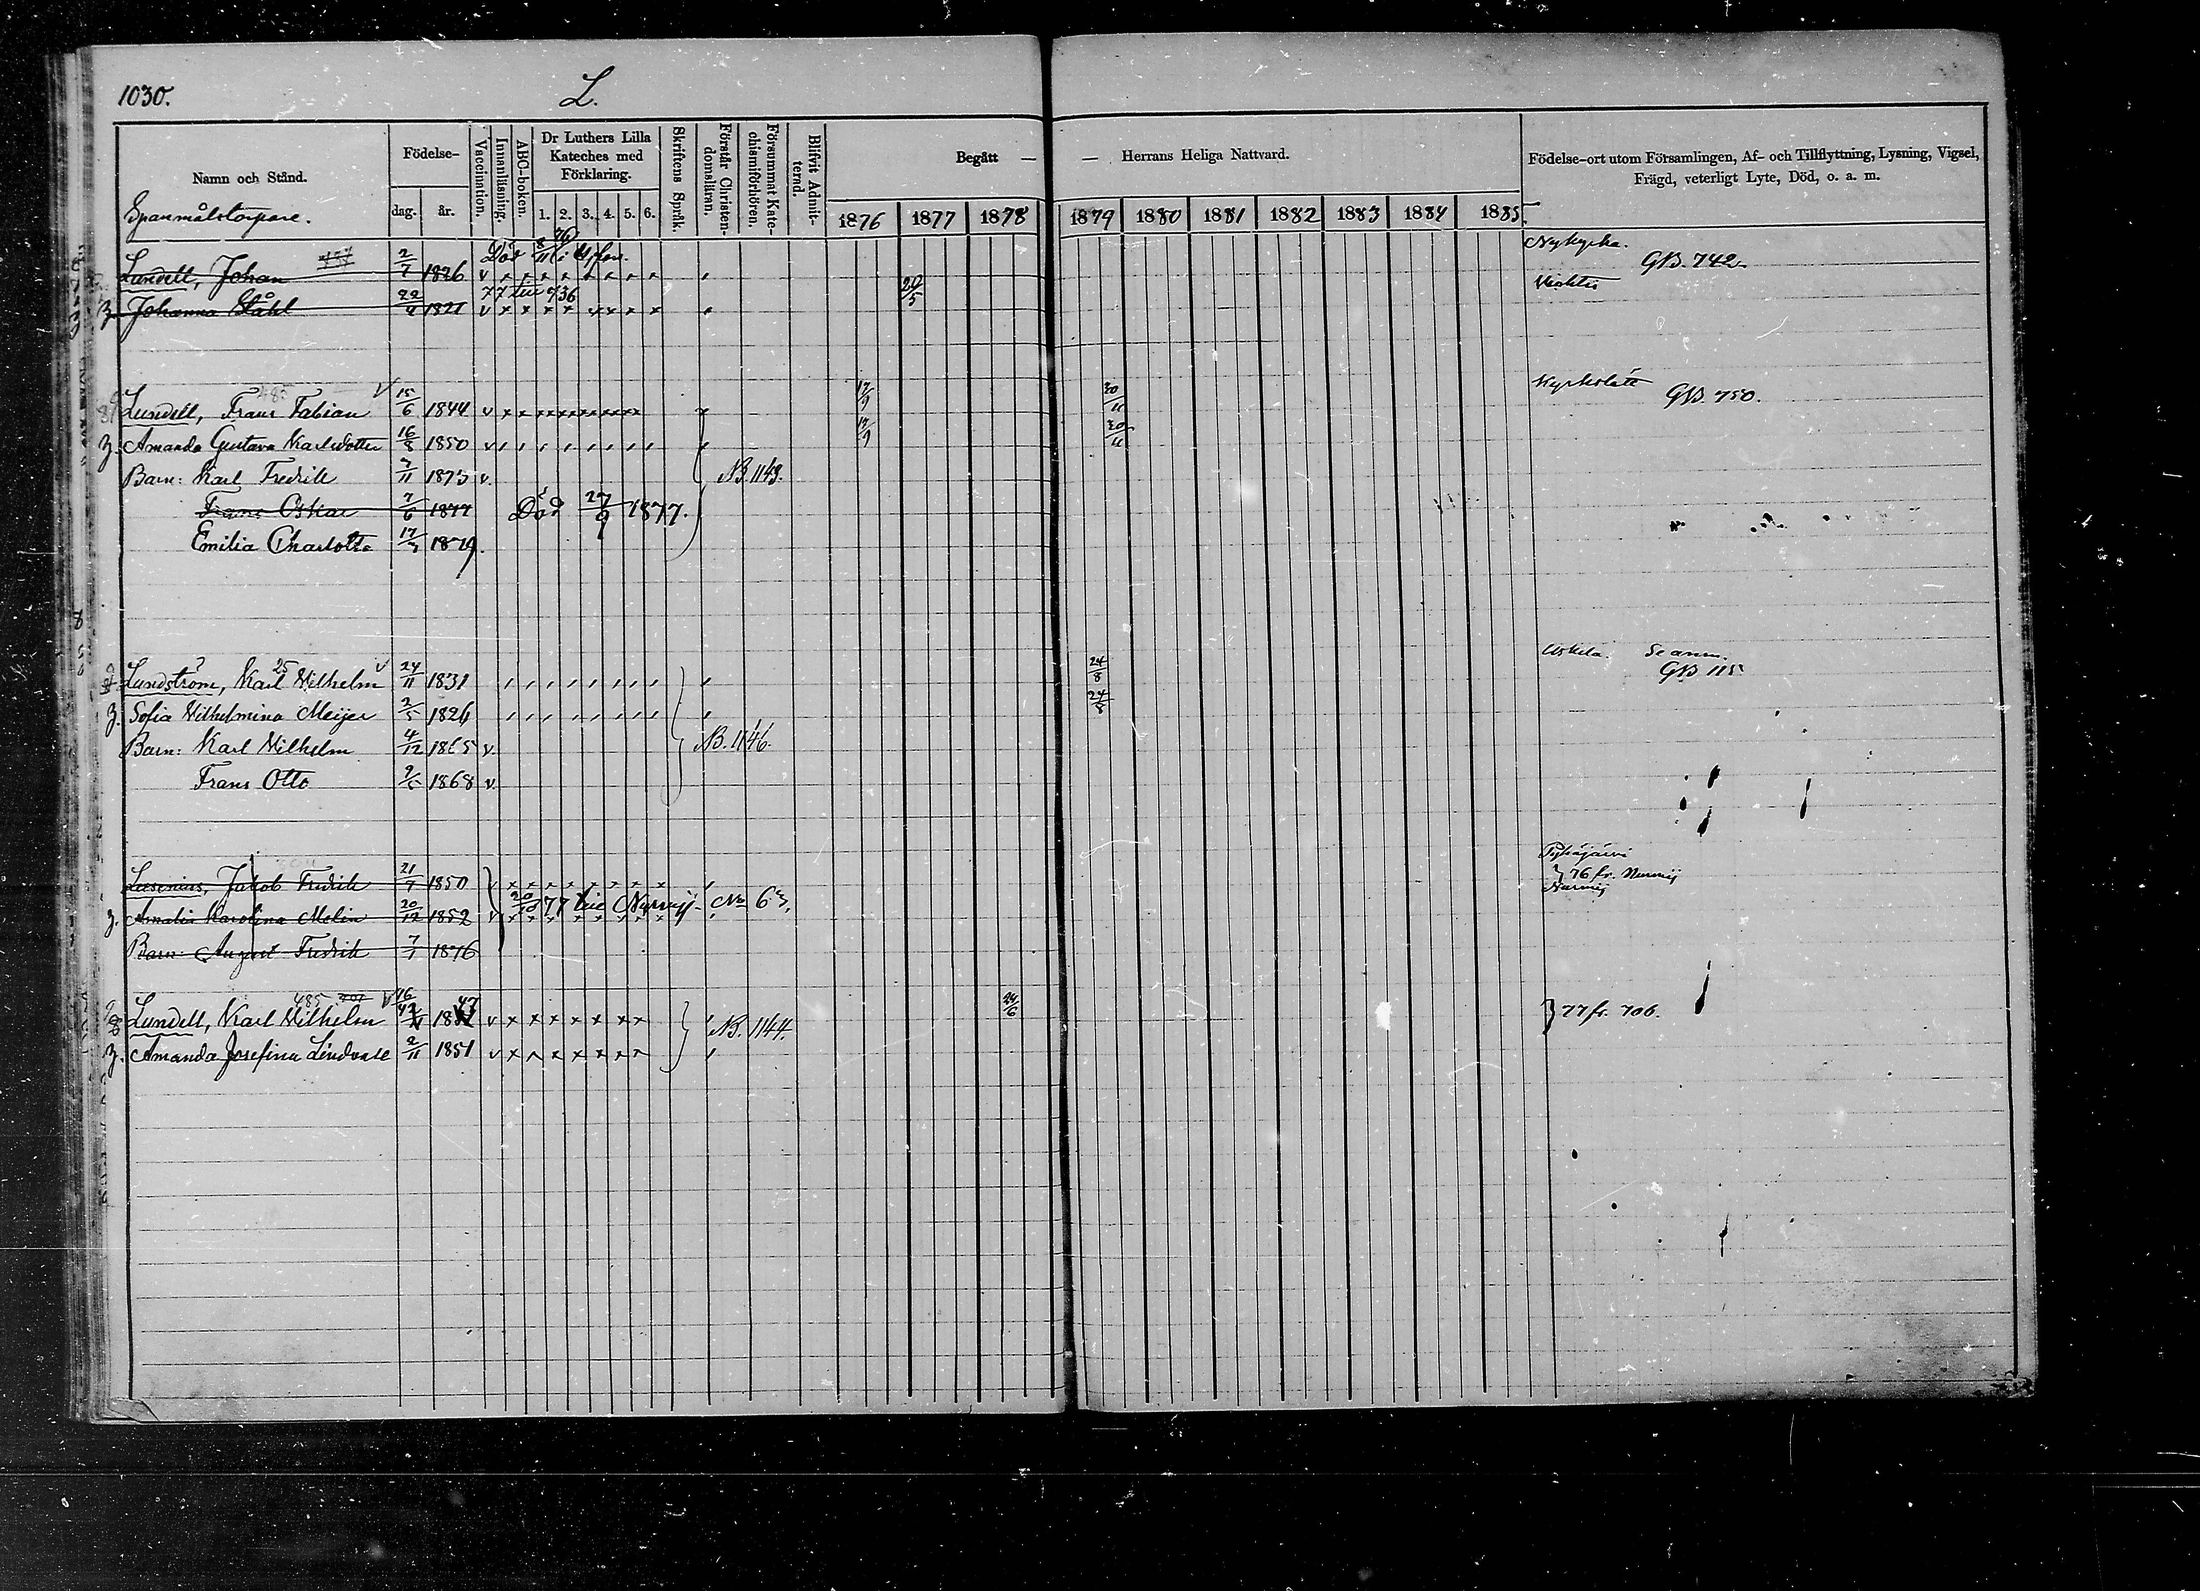 1030.
L.
Namn och Stånd.
Födelse-
dag.
år.
Vaccination.
Innanläsning.
ABC-boken.
Dr Luthers Lilla
Kateches med
Förklaring.
1. 2. 3. 4. 5. 6.
Skriftens Språk.
Förstår Christen-
domsläran.
Försummat Kate-
chismiförhören.
Blifvit Admit-
terad.
Begått —
— Herrans Heliga Nattvard.
Födelse-ort utom Församlingen, Af- och Tillflyttning, Lysning, Vigsel,
Frägd, veterligt Lyte, Död, o. a. m.
1876 1877 1878 1879 1880 1881 1882 1883 1884 1885.
Spanmålstorpare.
Lundell, Johan 2/7 1826 Nykyrka. GB. 742
Johanna Ståhl 22/4 1821 77 till 736 29/5
Lundell, Frans Fabian 15/6 1844 v 17/9 30/11 GB. 750.
Amanda Gustava Karlsdotter 16/8 1850 v 17/9 30/11
Barn: Karl Fredrik 1875 v. NB. 1143.
Frans Oskar 7/6 1877 Död 27/9 1877.
Emilia Charlotta 1879.
Lundström, Karl Wilhelm 25 24/11 1831 24/8 GB 115
Z. Sofia Wilhelmina Meijer 2/5 1826 24/8
Barn: Karl Wilhelm 4/12 1865 v. NB. 1146.
Frans Otto 1868 v.
Jakob Fredrik 21/7 1850 Pyhäjärvi
76 fr. Nurmij
Amalia Karolina Melin 20/12 1852 77 till Nurmij. No 63. Nurmij
Barn: August Fredrik 7/1 1876
485
Lundell, Karl Wilhelm 1847 v 24/6 77 fr. 706.
Z. Amanda Josefina 2/11 1851 v NB. 1144.